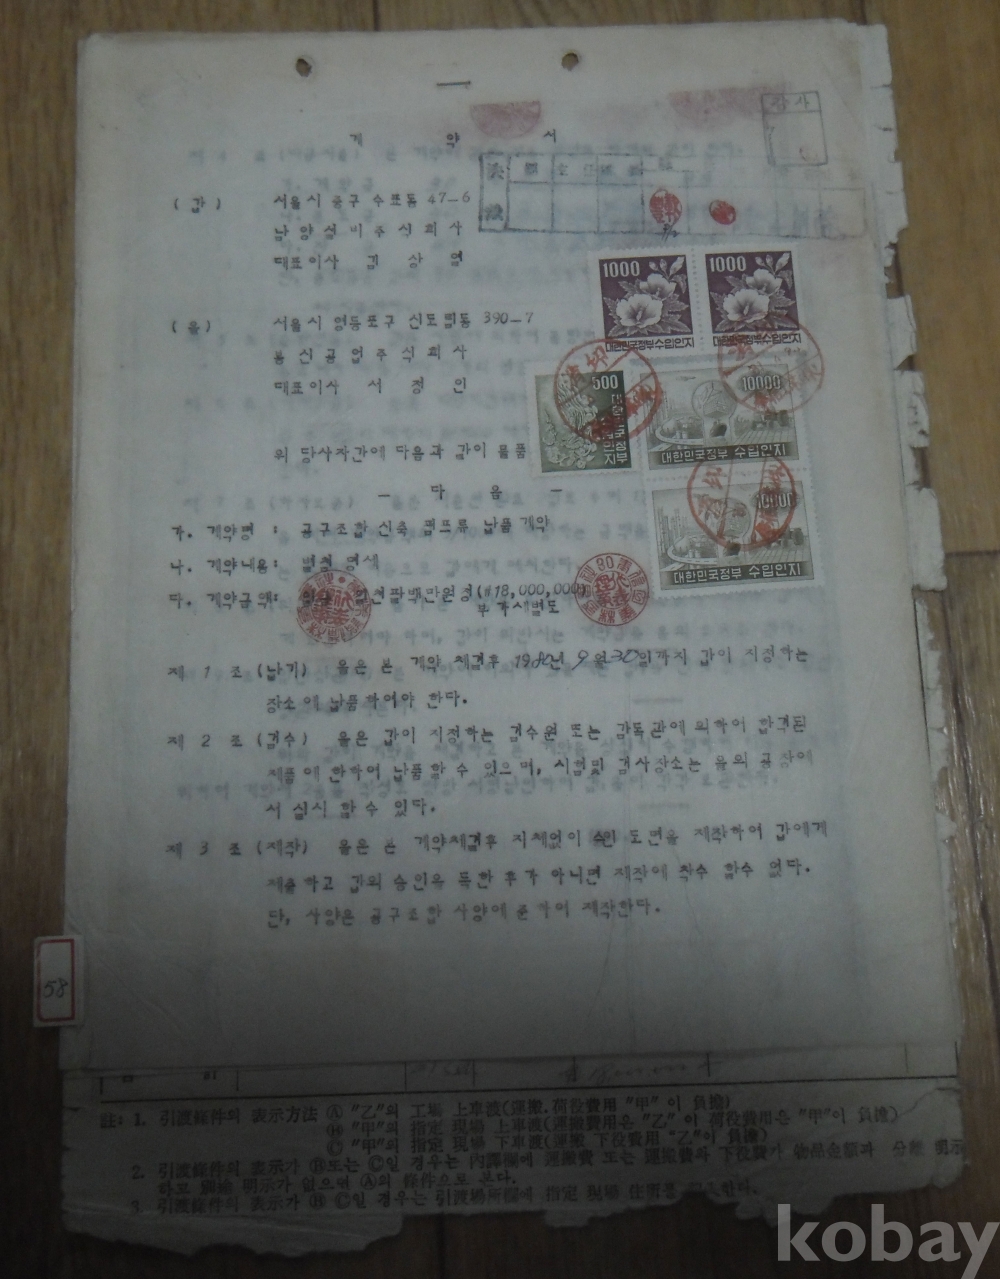 계 약 서
감 사
(갑) 서울시 중구 수표동 47-6
남양설비주식회사
대표이사 김 상 엽
(을) 서울시 영등포구 신도림동 390-7
봉신공업주식회사
대표이사 서 정 인
1000
대한민국정부수입인지
1000
대한민국정부수입인지
500
10000
대한민국정부 수입인지
10000
대한민국정부 수입인지
위 당사자간에 다음과 같이 물품
- 다 음 -
가. 계약명 : 공구조합 신축 펌프류 납품 계약
나. 계약내용: 별첨 명세
다. 계약금액: 일천팔백만원정(#18,000,000)
부가세별도
제 1 조 (납기) 을은 본 계약 체결후 1980년 9월 30일까지 갑이 지정하는
장소에 납품하여야 한다.
제 2 조 (검수) 을은 갑이 지정하는 검수원 또는 감독관에 의하여 합격된
제품에 한하여 납품할수 있으며, 시험및 검사장소는 을의 공장에
서 실시 할수 있다.
제 3 조 (제작) 을은 본 계약체결후 지체없이 승인 도면을 제작하여 갑에게
제출하고 갑의 승인을 득한 후가 아니면 제작에 착수 할수 없다.
단, 사양은 공구조합 사양에 준하여 제작한다.
58
註: 1. 引渡條件의 表示方法 Ⓐ "乙"의 工場 上車渡(運搬.荷役費用 "甲"이 負擔)
Ⓑ "甲"의 指定 現場 上車渡(運搬費用은 "乙"이 荷役費用은 "甲"이 負擔)
Ⓒ "甲"의 指定 現場 下車渡(運搬 下役費用 "乙"이 負擔)
2. 引渡條件의 表示가 Ⓑ또는 Ⓒ일 경우는 內譯欄에 運搬費 또는 運搬費와 下役費가 物品金額과 分離 明示
하고 別途 明示가 없으면 Ⓐ의 條件으로 본다.
3. 引渡條件의 表示가 Ⓑ Ⓒ일 경우는 引渡場所欄에 指定 現場 住所를
kobay